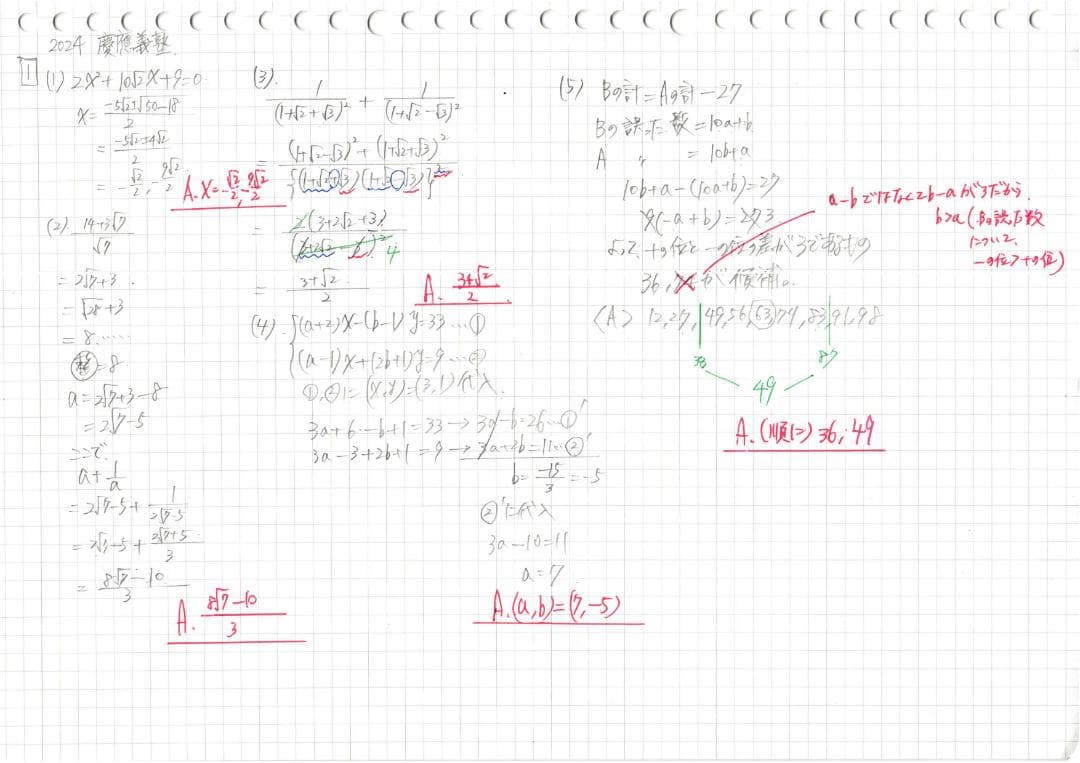 2024 慶應義塾
1
(1) 2x²+10√2x+9=0
x=(-5√2±√50-18)/2
=(-5√2±4√2)/2
=-√2/2, -9√2/2
A. x=-√2/2, -9√2/2
(2) (14+3√7)/√7
=2√7+3
=√28+3
=8.……
=8
a=2√7+3-8
=2√7-5
ここで、
a+1/a
=2√7-5+1/(2√7-5)
=2√7-5+(2√7+5)/3
=(8√7-10)/3
A. (8√7-10)/3
(3)
1/(1+√2+√3)² + 1/(1+√2-√3)²
=((1+√2-√3)²+(1+√2+√3)²)/{(1+√2+√3)(1+√2-√3)}²
=2(3+2√2+3)/(3+2√2-3)² 4
=(3+√2)/2
A. (3+√2)/2
(4) {(a+2)x-(b-1)y=33…①
(a-1)x+(2b+1)y=9…②
①,②に(x,y)=(3,1)代入
3a+6-b+1=33→3a-b=26…①'
3a-3+2b+1=9→3a+2b=11…②'
b=-15/3=-5
②'に代入
3a-10=11
a=7
A. (a,b)=(7,-5)
(5) Bの計=Aの計-27
Bの誤った数=10a+b
A 〃 =10b+a
10b+a-(10a+b)=27
9(-a+b)=27 3
よって、十の位と一の位の差が3で
36, 63が候補。
a-bではなくb-aが3だから、
b>a(Bの誤った数
について、
一の位>十の位)
〈A〉 12,27,49,56,63,74,83,91,98
38
87
49
A. (順に)36, 49